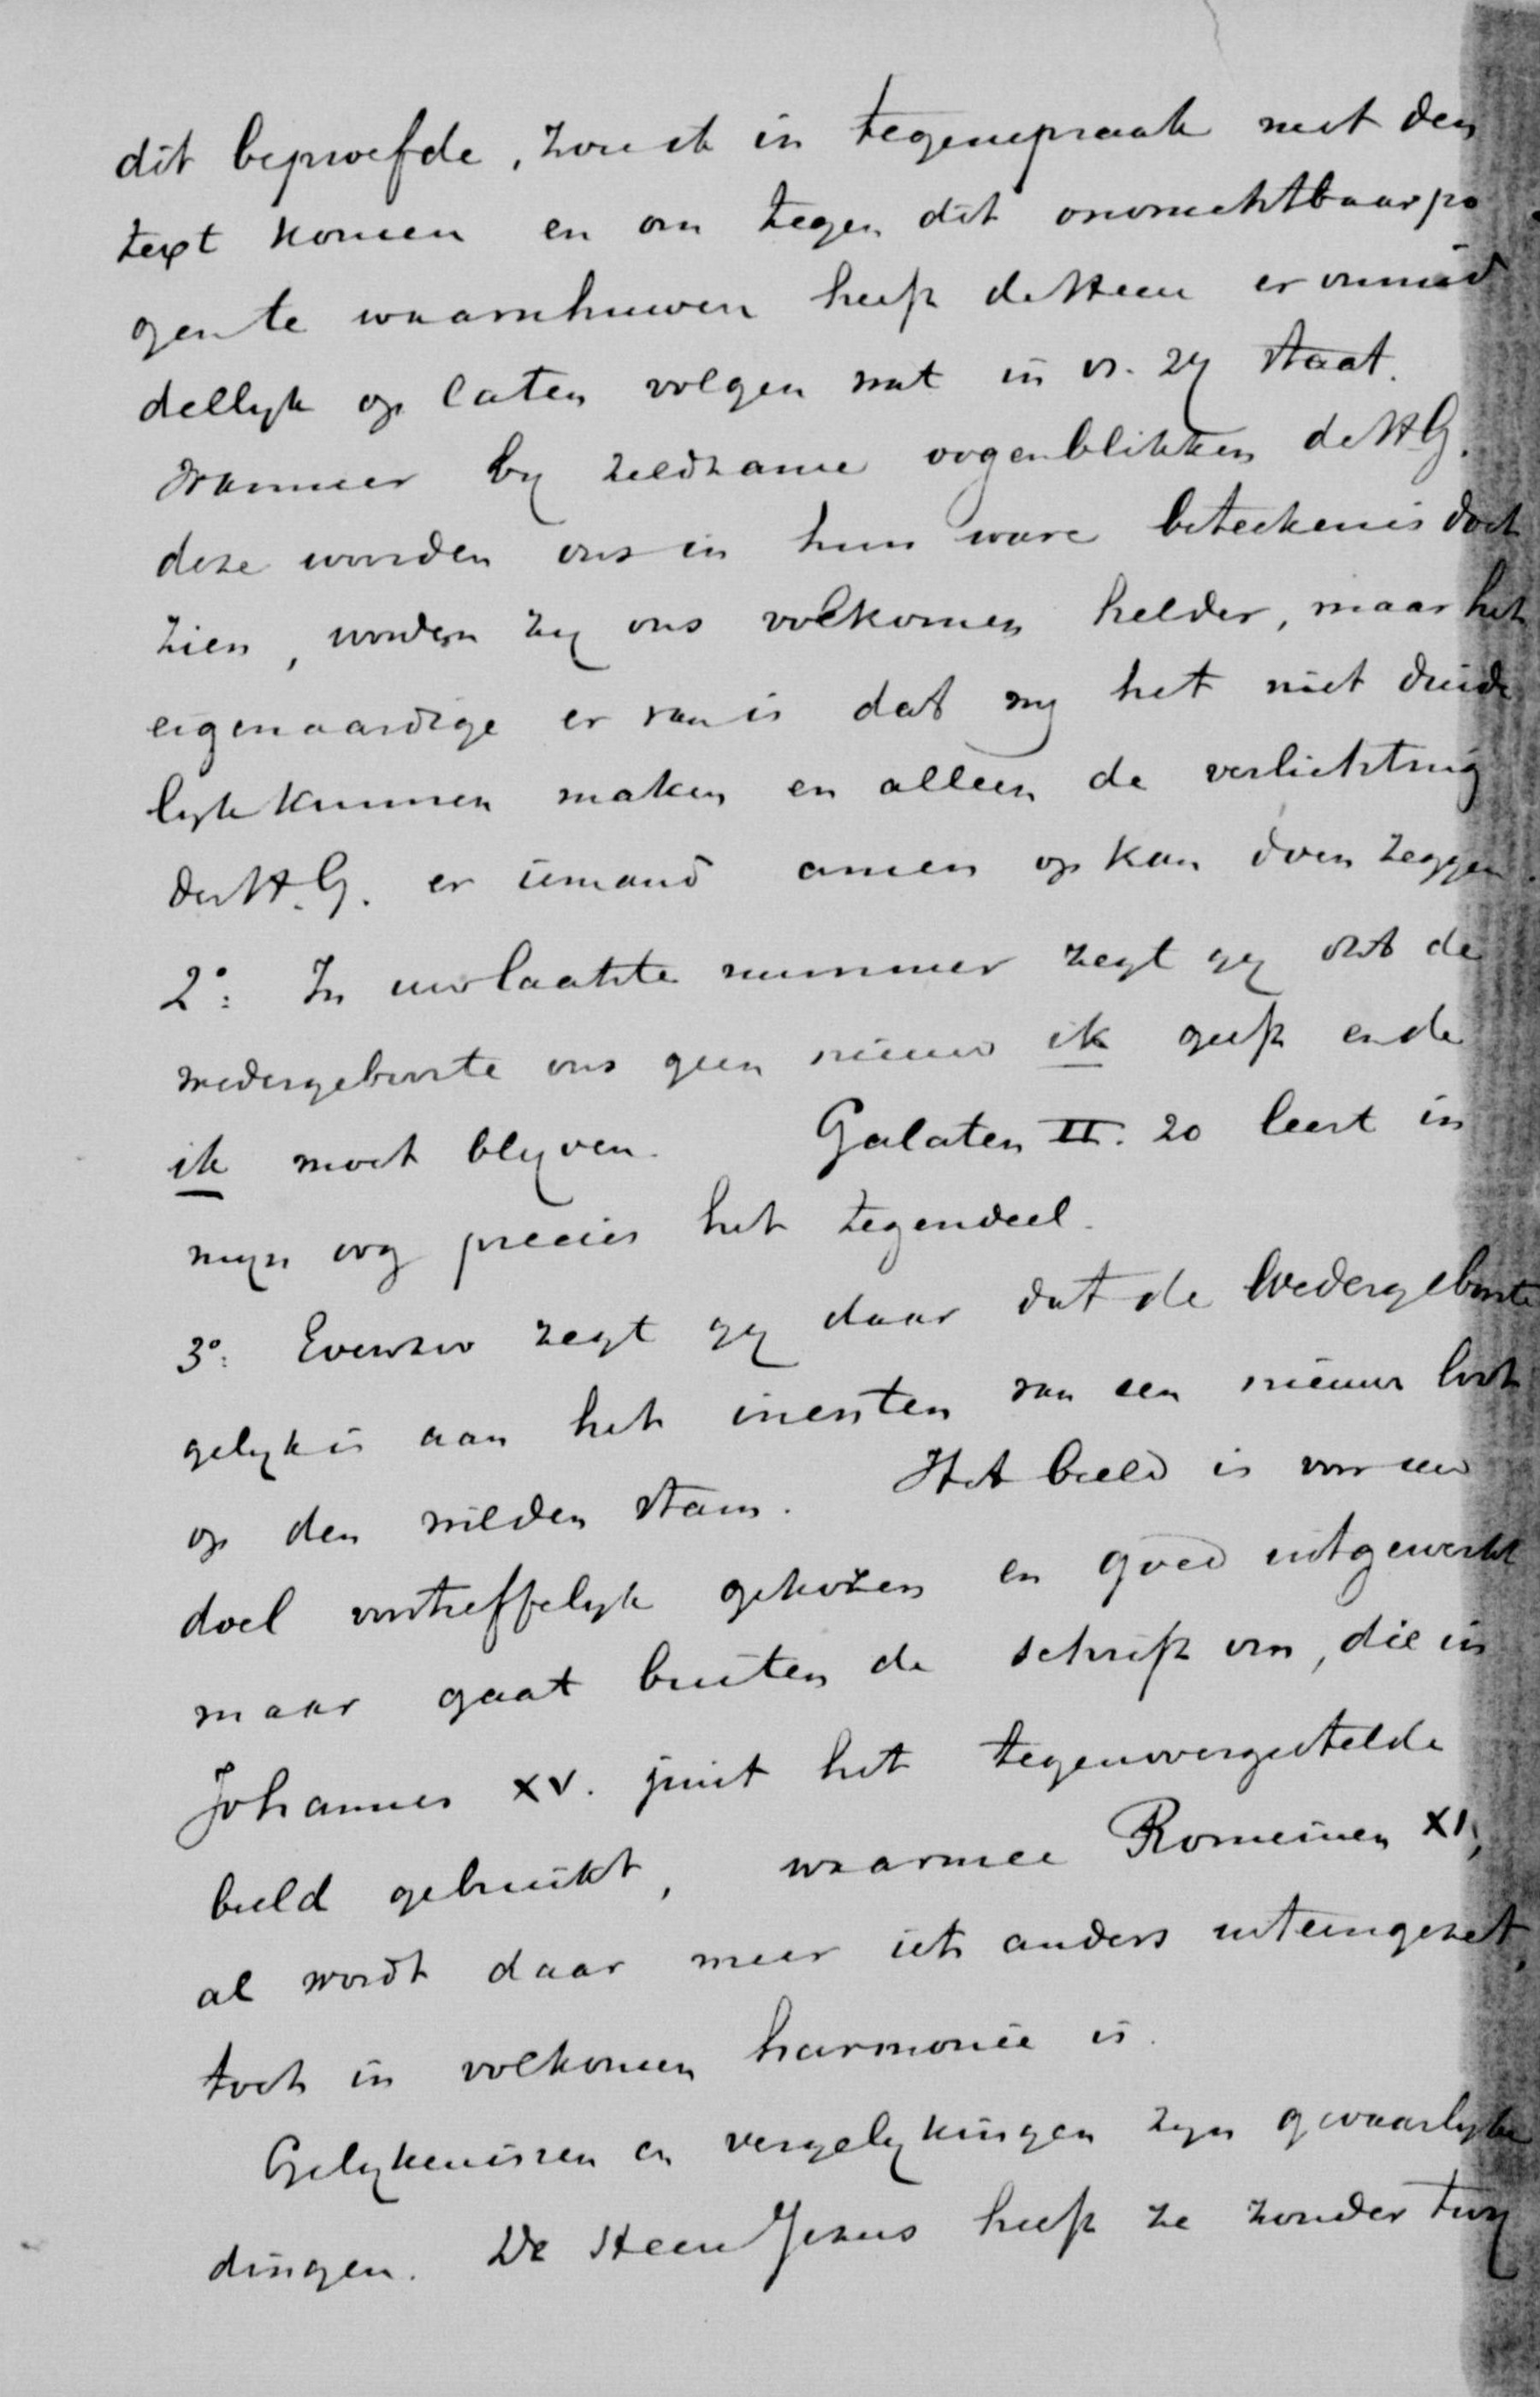 dit beproefde, zou ik in tegenspraak met den
text komen en om tegen dit onvruchtbaar po
gen te waarschuwen heeft de Heer er onmid
dellyk op laten volgen wat in vs. 24 staat.
Wanneer by zeldzame oogenblikken de H.G.
deze woorden ons in hun ware beteekenis doet
zien, worden zy ons volkomen helder, maar het
eigenaardige er van is dat wy het niet duide
lyk kunnen maken en alleen de verlichting
des H.G. er iemand amen op kan doen zeggen.
2°: In uw laatste nummer zegt gy dat de
wedergeboorte ons geen nieuw ik geeft en de
ik moet blyven. Galaten II. 20 leert in
myn oog precies het tegendeel.
3°: Evenzoo zegt gy daar dat de Wedergeboorte
gelyk is aan het inenten van een nieuwe loot
op den wilden stam. Het beeld is voor uw
doel voortreffelyk gekozen en goed uitgewerkt
maar gaat buiten de schrift om, die in
Johannes XV. juist het tegenovergestelde
beeld gebruikt, waarmee Romeinen XI,
al wordt daar meer iets anders uiteengezet,
toch in volkomen harmonie is.
Gelykenissen en vergelykingen zyn gevaarlyke
dingen. De Heere Jezus heeft ze zonder twy